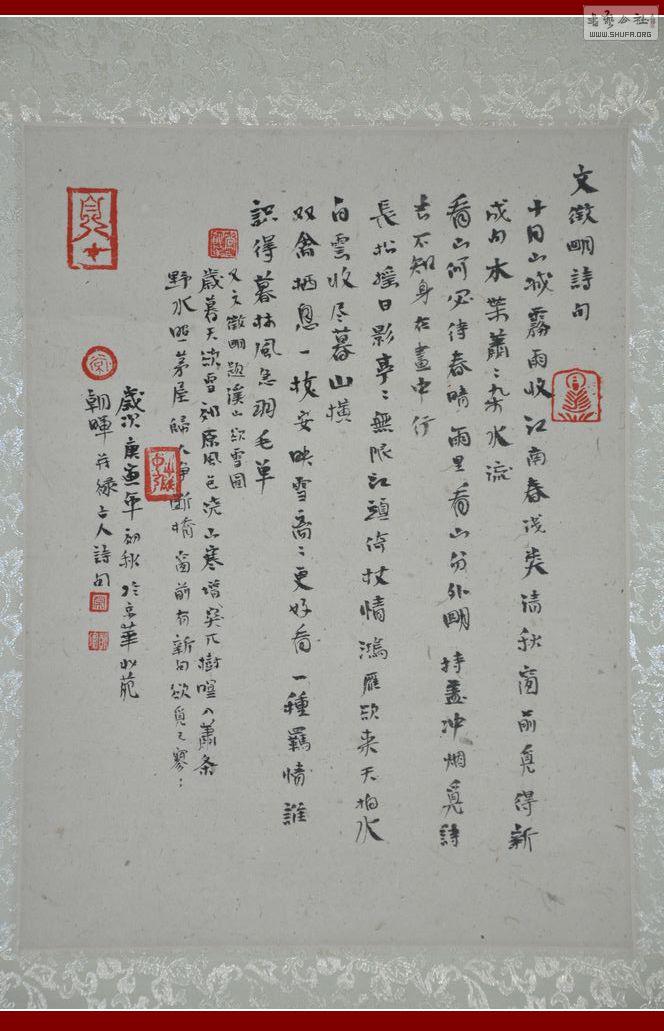 文徵明詩句
十月山城霧雨收江南春浅类清秋窗前覓得新
成句木葉蕭ミ水流
看山何必待春晴雨里看山分外明持盖冲烟覓詩
去不知身在畫中行
長松摇日影亭ミ無限江頭倚杖情鴻雁欲来天拍水
白雲收尽暮山横
双禽栖息一枝安映雪高ミ更好看一種羈情誰
識得暮林風急羽毛單
又文徵明題溪山欲雪图
歲暮天欲雪郊原风色浇山寒增突兀樹喧入蕭条
野水照茅屋歸人争断橋窗前有新句欲覓之寥ミ
歲次庚寅年初秋於京華北苑
朝暉并錄古人詩句
書藝公社
WWW.SHUFA.ORG